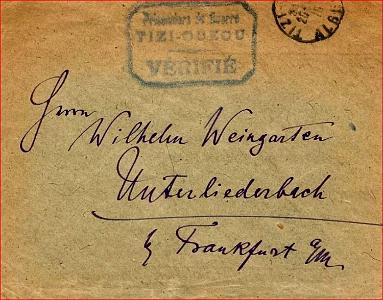 Prisonniers de Guerre
TIZI-OUZOU
VÉRIFIÉ
TIZI
Herrn
Wilhelm Weingarten
Unterliederbach
b/ Frankfurt a/M.